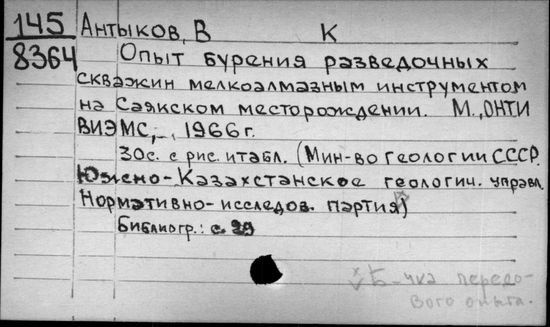 145 Антыков, В К
8364 Опыт бурения разведочных
скважин мелкоалмазным инструментом
на Саякском месторождении. М., ОНТИ
ВИЭМС, 1966г.
30с. с рис. и табл. (Мин-во геологии СССР.
Южно-Казахстанское геологич. управл.
Нормативно-исследов. партия)
Библиогр.: с. 29
Б-чка передо-
вого опыта.